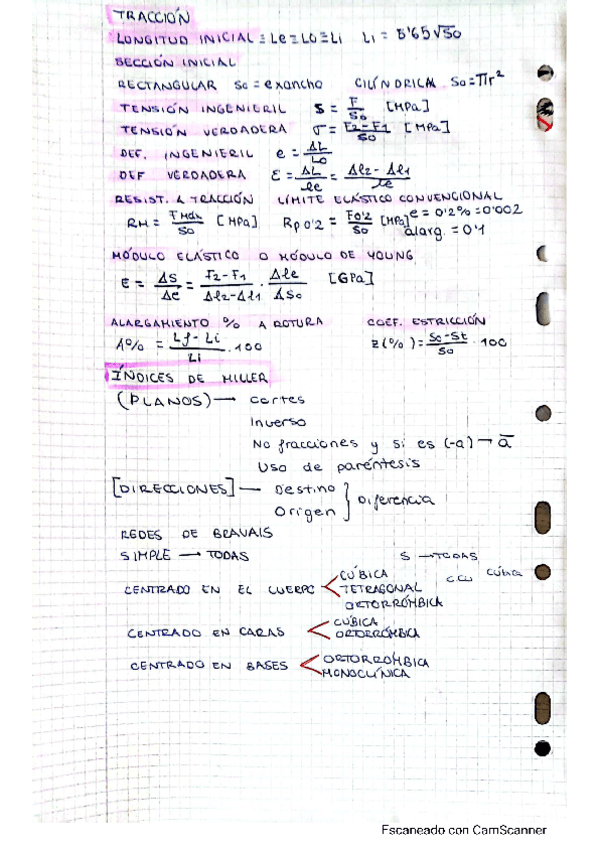 TRACCIÓN
LONGITUD INICIAL ≡ Le ≡ L0 ≡ Li Li = 5'65√So
SECCIÓN INICIAL
RECTANGULAR So = exancho CILÍNDRICA So = πr²
TENSIÓN INGENIERIL S = F/So [MPa]
TENSIÓN VERDADERA σ = F2-F1/So [MPa]
DEF. INGENIERIL e = ΔL/Lo
DEF VERDADERA ε = ΔL/le = Δl2 - Δl1/le
RESIST. A TRACCIÓN LÍMITE ELÁSTICO CONVENCIONAL
RM = FMáx/So [MPa] Rp0'2 = F0'2/So [MPa] e = 0'2% = 0'002
alarg. = 0'1
MÓDULO ELÁSTICO O MÓDULO DE YOUNG
E = ΔS/Δe = F2-F1/Δl2-Δl1 · Δle/ΔSo [GPa]
ALARGAMIENTO % A ROTURA COEF. ESTRICCIÓN
A% = Lf - Li/Li · 100 Z(%) = So - St/So · 100
ÍNDICES DE MILLER
(PLANOS) → cortes
Inverso
No fracciones y si es (-a) → a̅
Uso de paréntesis
[DIRECCIONES] — Destino
Origen } Diferencia
REDES DE BRAVAIS
SIMPLE → TODAS S → TODAS
CENTRADO EN EL CUERPO < CÚBICA CCU CÚBICA
TETRAGONAL
ORTORRÓMBICA
CENTRADO EN CARAS < CÚBICA
ORTORRÓMBICA
CENTRADO EN BASES < ORTORRÓMBICA
MONOCLÍNICA
Escaneado con CamScanner